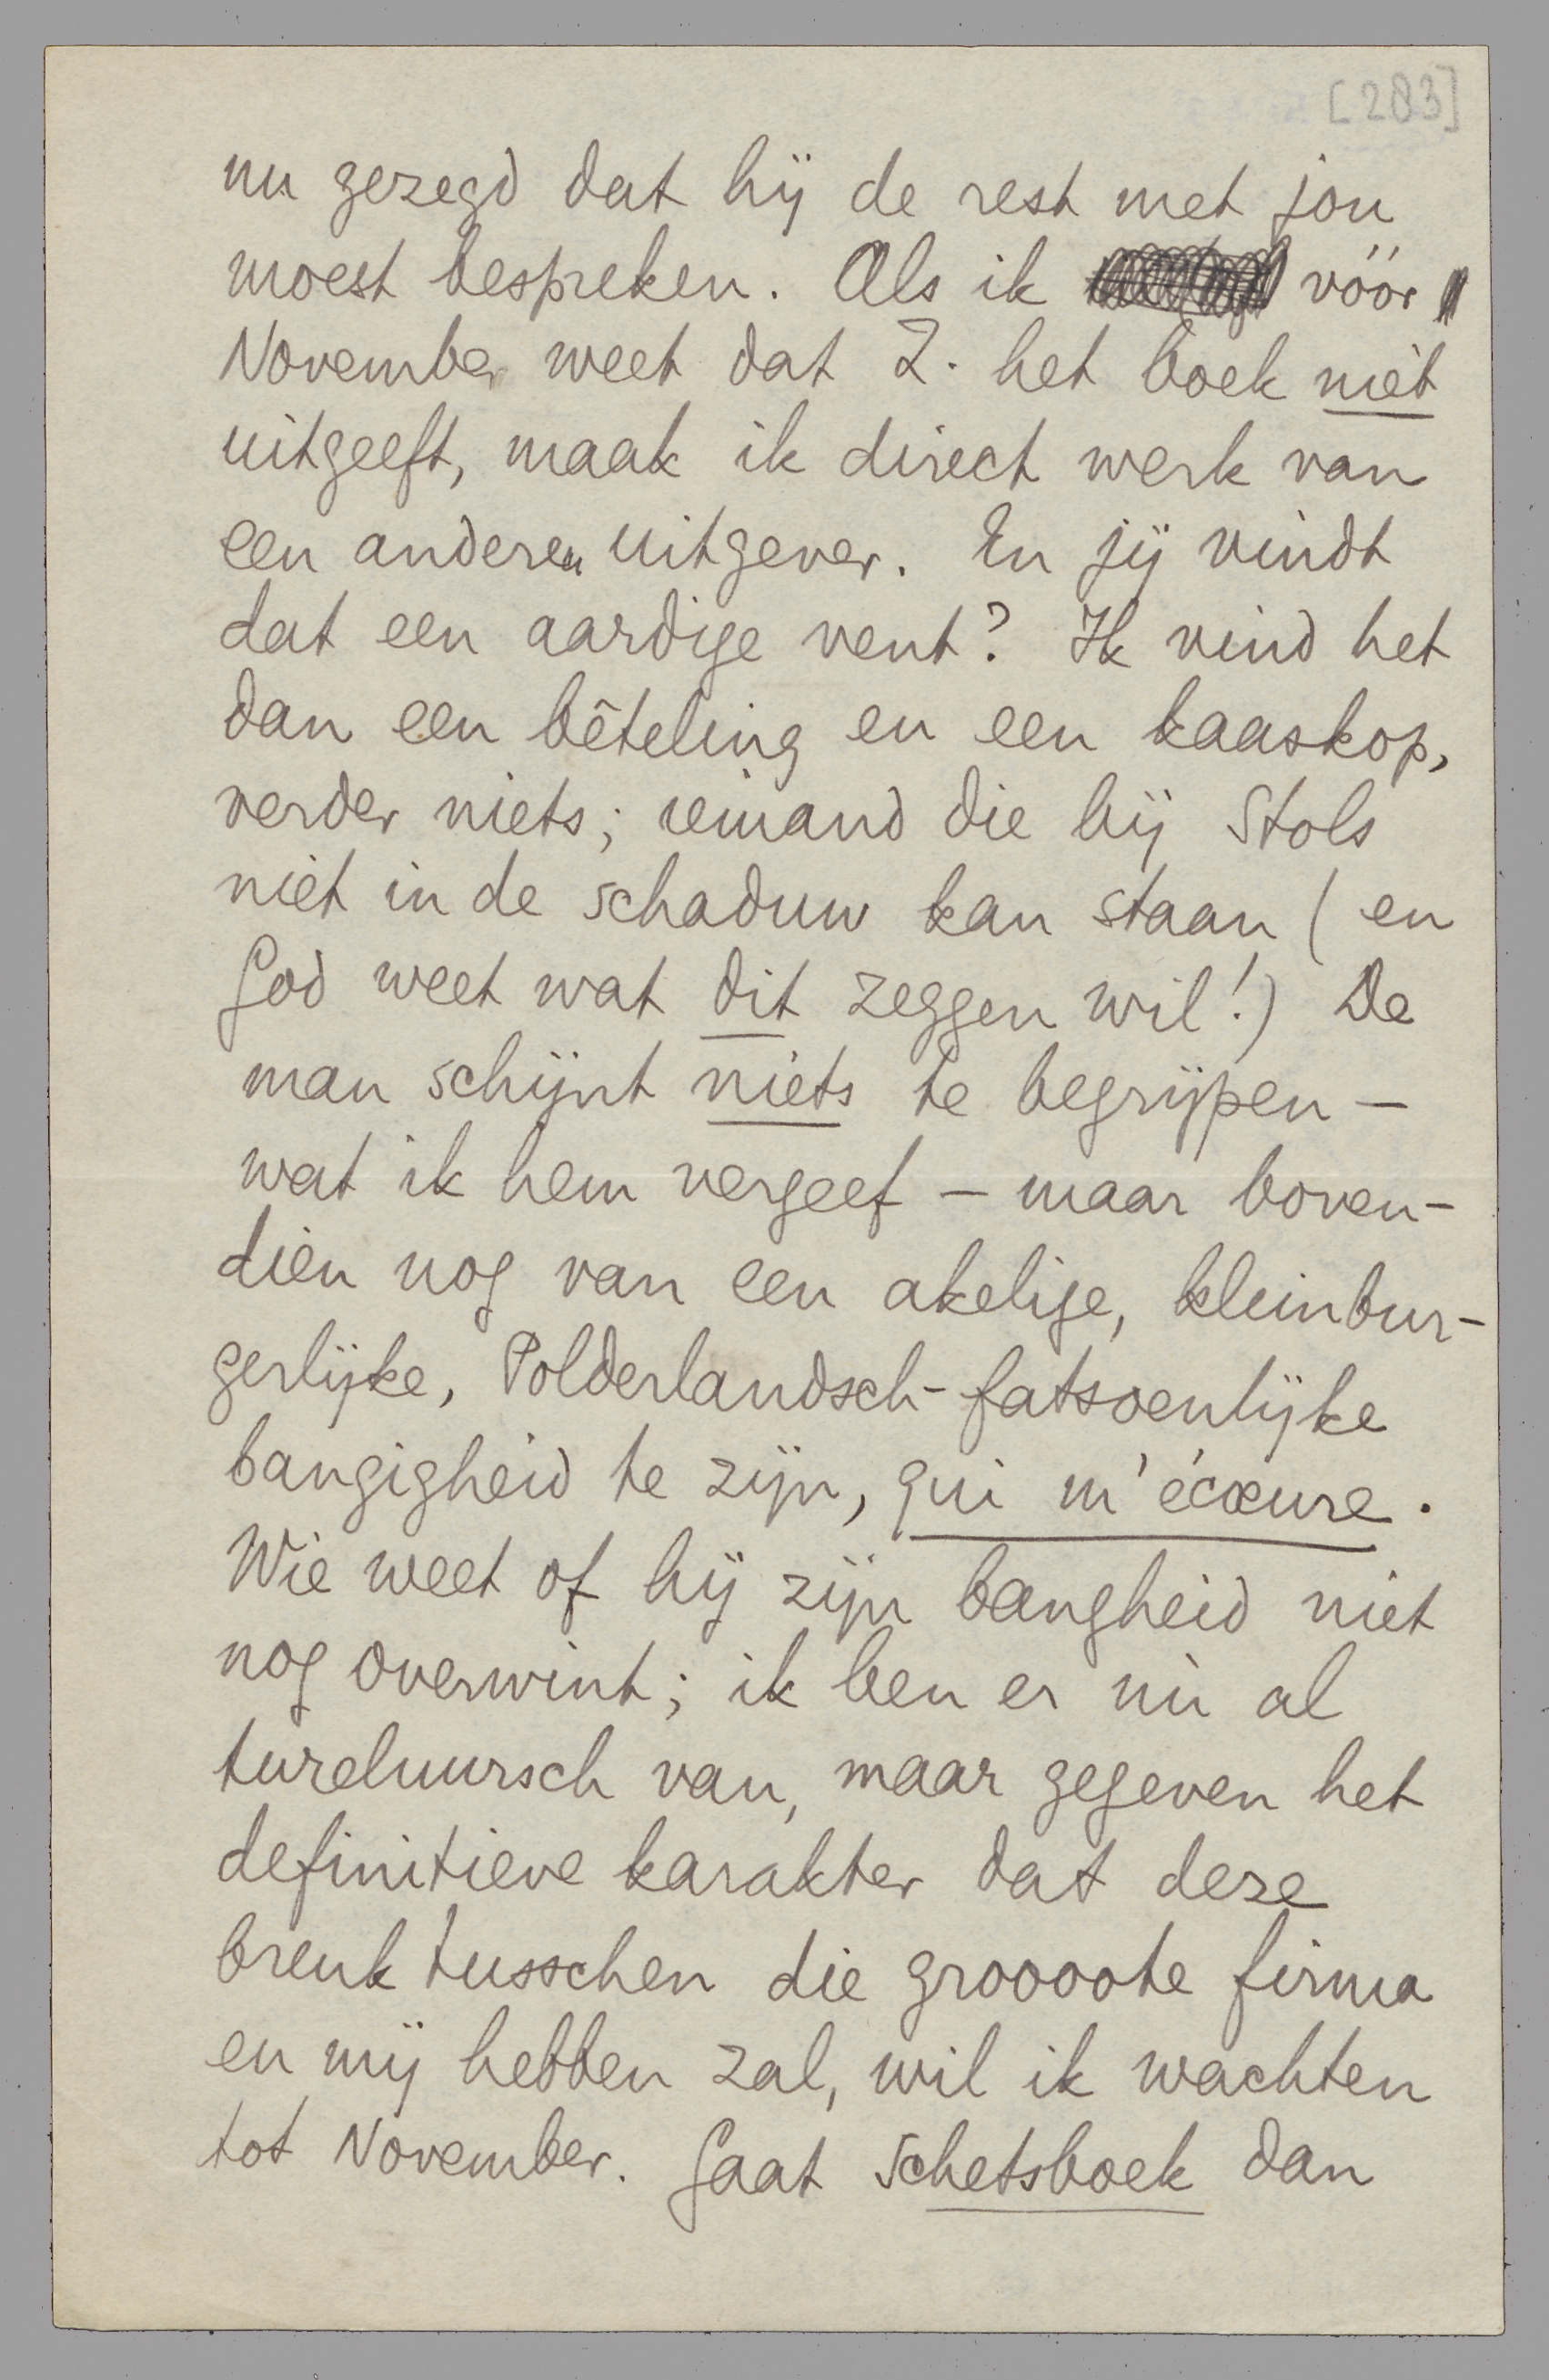 [283]
nu gezegd dat hij de rest met jou
moest bespreken. Als ik vóór
November weet dat Z. het boek niet
uitgeeft, maak ik direct werk van
een anderen uitgever. En jij vindt
dat een aardige vent? Ik vind het
dan een bêteling en een kaaskop,
verder niets; iemand die bij Stols
niet in de schaduw kan staan (en
God weet wat dit zeggen wil!) De
man schijnt niets te begrijpen –
wat ik hem vergeef – maar boven-
dien nog van een akelige, kleinbur-
gerlijke, Polderlandsch-fatsoenlijke
bangigheid te zijn, qui m'écœure.
Wie weet of hij zijn bangheid niet
nog overwint; ik ben er nù al
tureluursch van, maar gegeven het
definitieve karakter dat deze
breuk tusschen die groooote firma
en mij hebben zal, wil ik wachten
tot November. Gaat Schetsboek dan